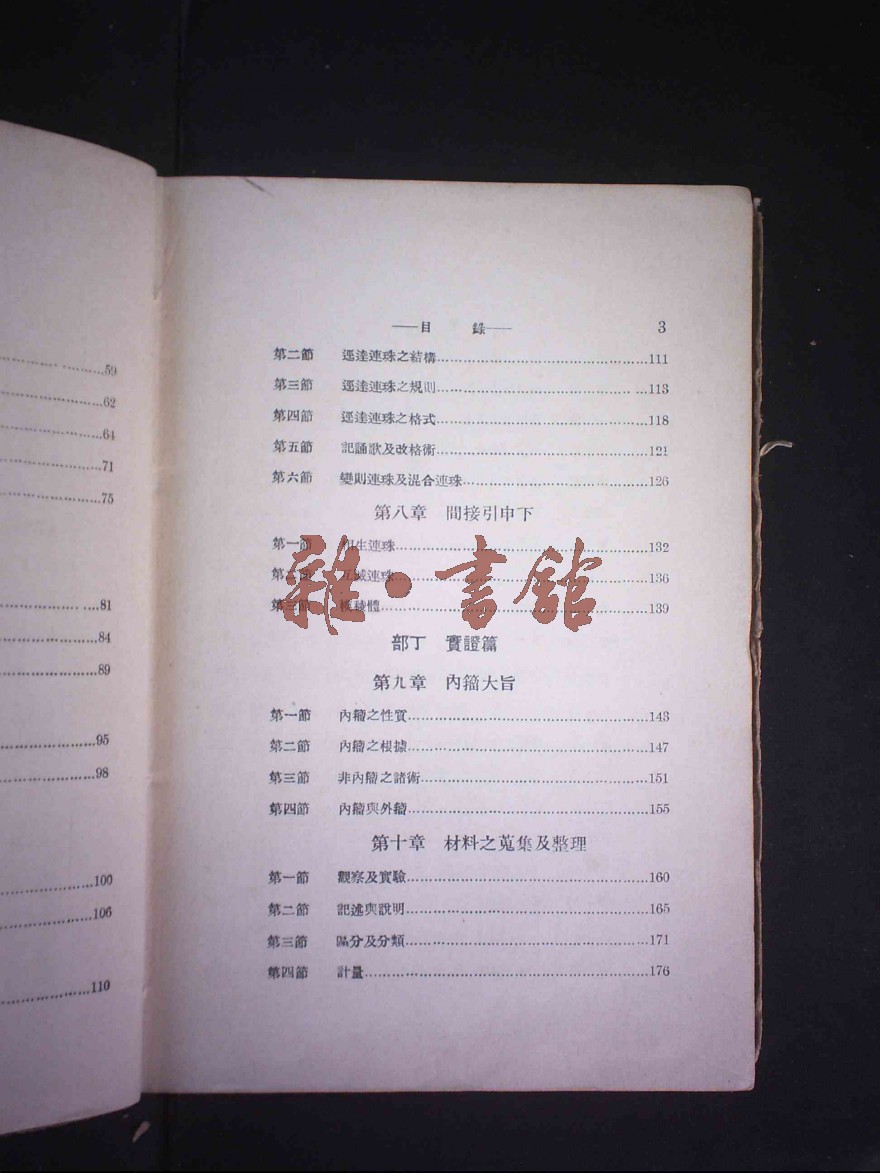 59
62
64
71
75
81
84
89
95
98
100
106
110
——目 錄—— 3
第二節 逕達連珠之結構 111
第三節 逕達連珠之規則 113
第四節 逕達連珠之格式 118
第五節 記誦歌及改格術 121
第六節 變則連珠及混合連珠 126
第八章 間接引申下
第一節 相生連珠 132
第二節 互滅連珠 136
第三節 體 139
雜·書館
部丁 實證篇
第九章 內籀大旨
第一節 內籀之性質 143
第二節 內籀之根據 147
第三節 非內籀之諸術 151
第四節 內籀與外籀 155
第十章 材料之蒐集及整理
第一節 觀察及實驗 160
第二節 記述與說明 165
第三節 區分及分類 171
第四節 計量 176